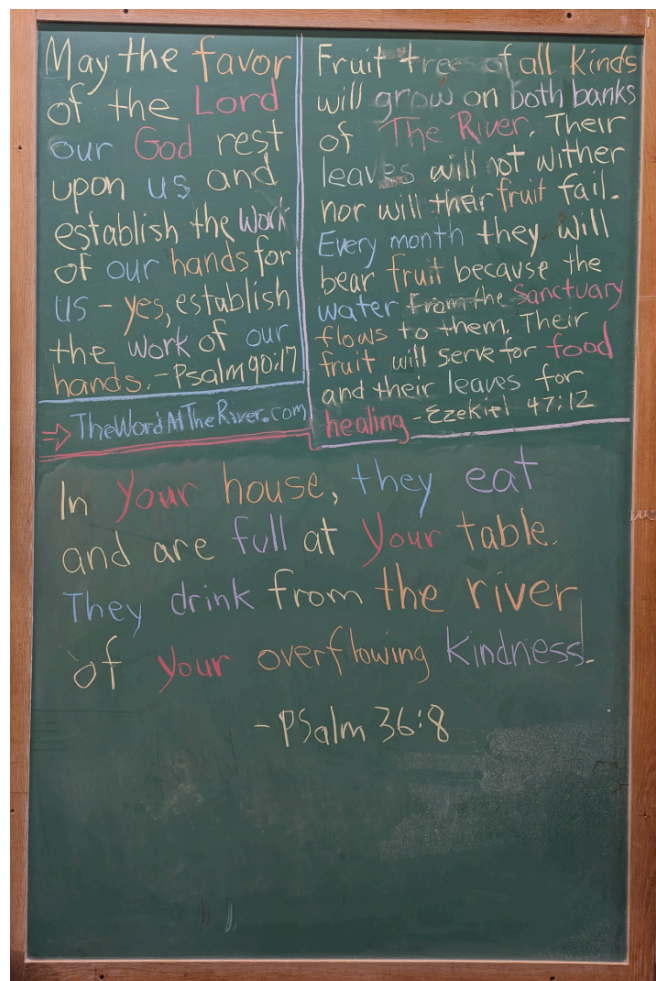 May the favor
of the Lord
our God rest
upon us and
establish the work
of our hands for
us - yes, establish
the work of our
hands. - Psalm 90:17
TheWordAtTheRiver.com
Fruit trees of all kinds
will grow on both banks
of The River. Their
leaves will not wither
nor will their fruit fail.
Every month they will
bear fruit because the
water from the sanctuary
flows to them. Their
fruit will serve for food
and their leaves for
healing - Ezekiel 47:12
In your house, they eat
and are full at your table.
They drink from the river
of your overflowing kindness.
- Psalm 36:8